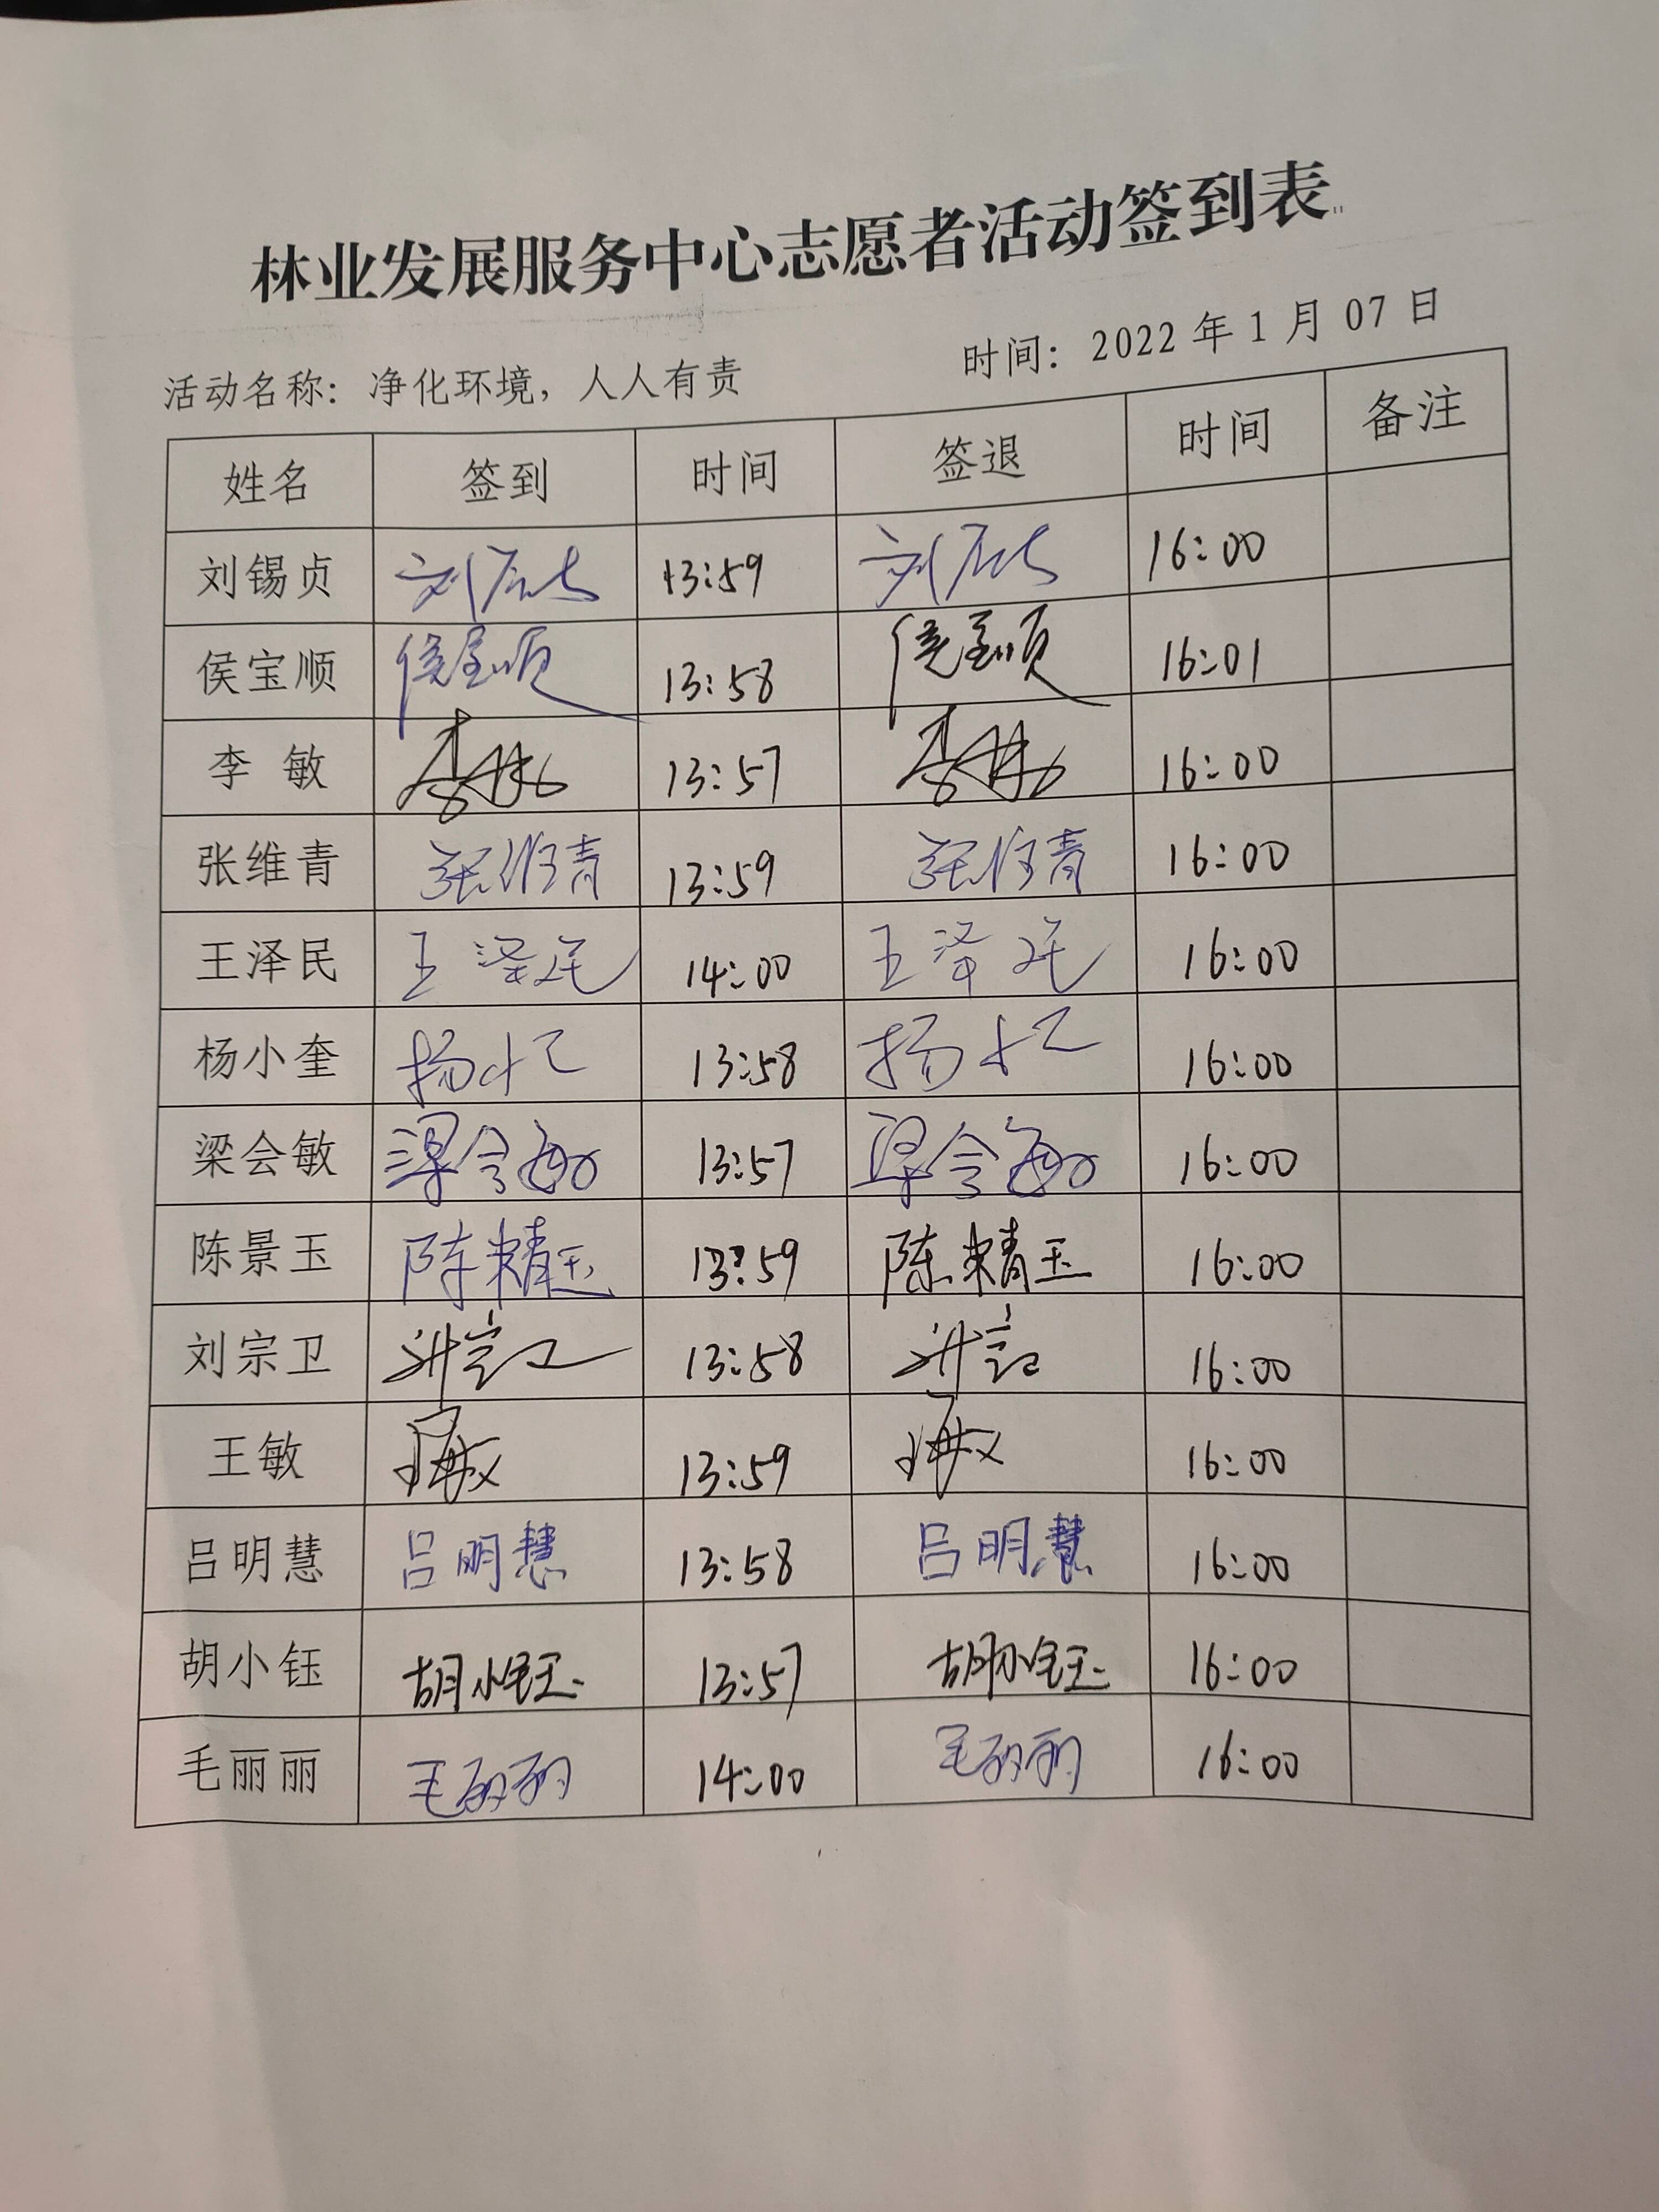 林业发展服务中心志愿者活动签到表
活动名称：净化环境，人人有责 时间：2022 年 1 月 07 日
姓名 签到 时间 签退 时间 备注
刘锡贞 13:59 16:00
侯宝顺 侯宝顺 13:58 侯宝顺 16:01
李 敏 李敏 13:57 李敏 16:00
张维青 张维青 13:59 张维青 16:00
王泽民 王泽民 14:00 王泽民 16:00
杨小奎 13:58 16:00
梁会敏 梁会敏 13:57 梁会敏 16:00
陈景玉 陈精玉 13:59 陈精玉 16:00
刘宗卫 刘宗卫 13:58 刘宗卫 16:00
王敏 王敏 13:59 王敏 16:00
吕明慧 吕明慧 13:58 吕明慧 16:00
胡小钰 胡小钰 13:57 胡小钰 16:00
毛丽丽 毛丽丽 14:00 毛丽丽 16:00